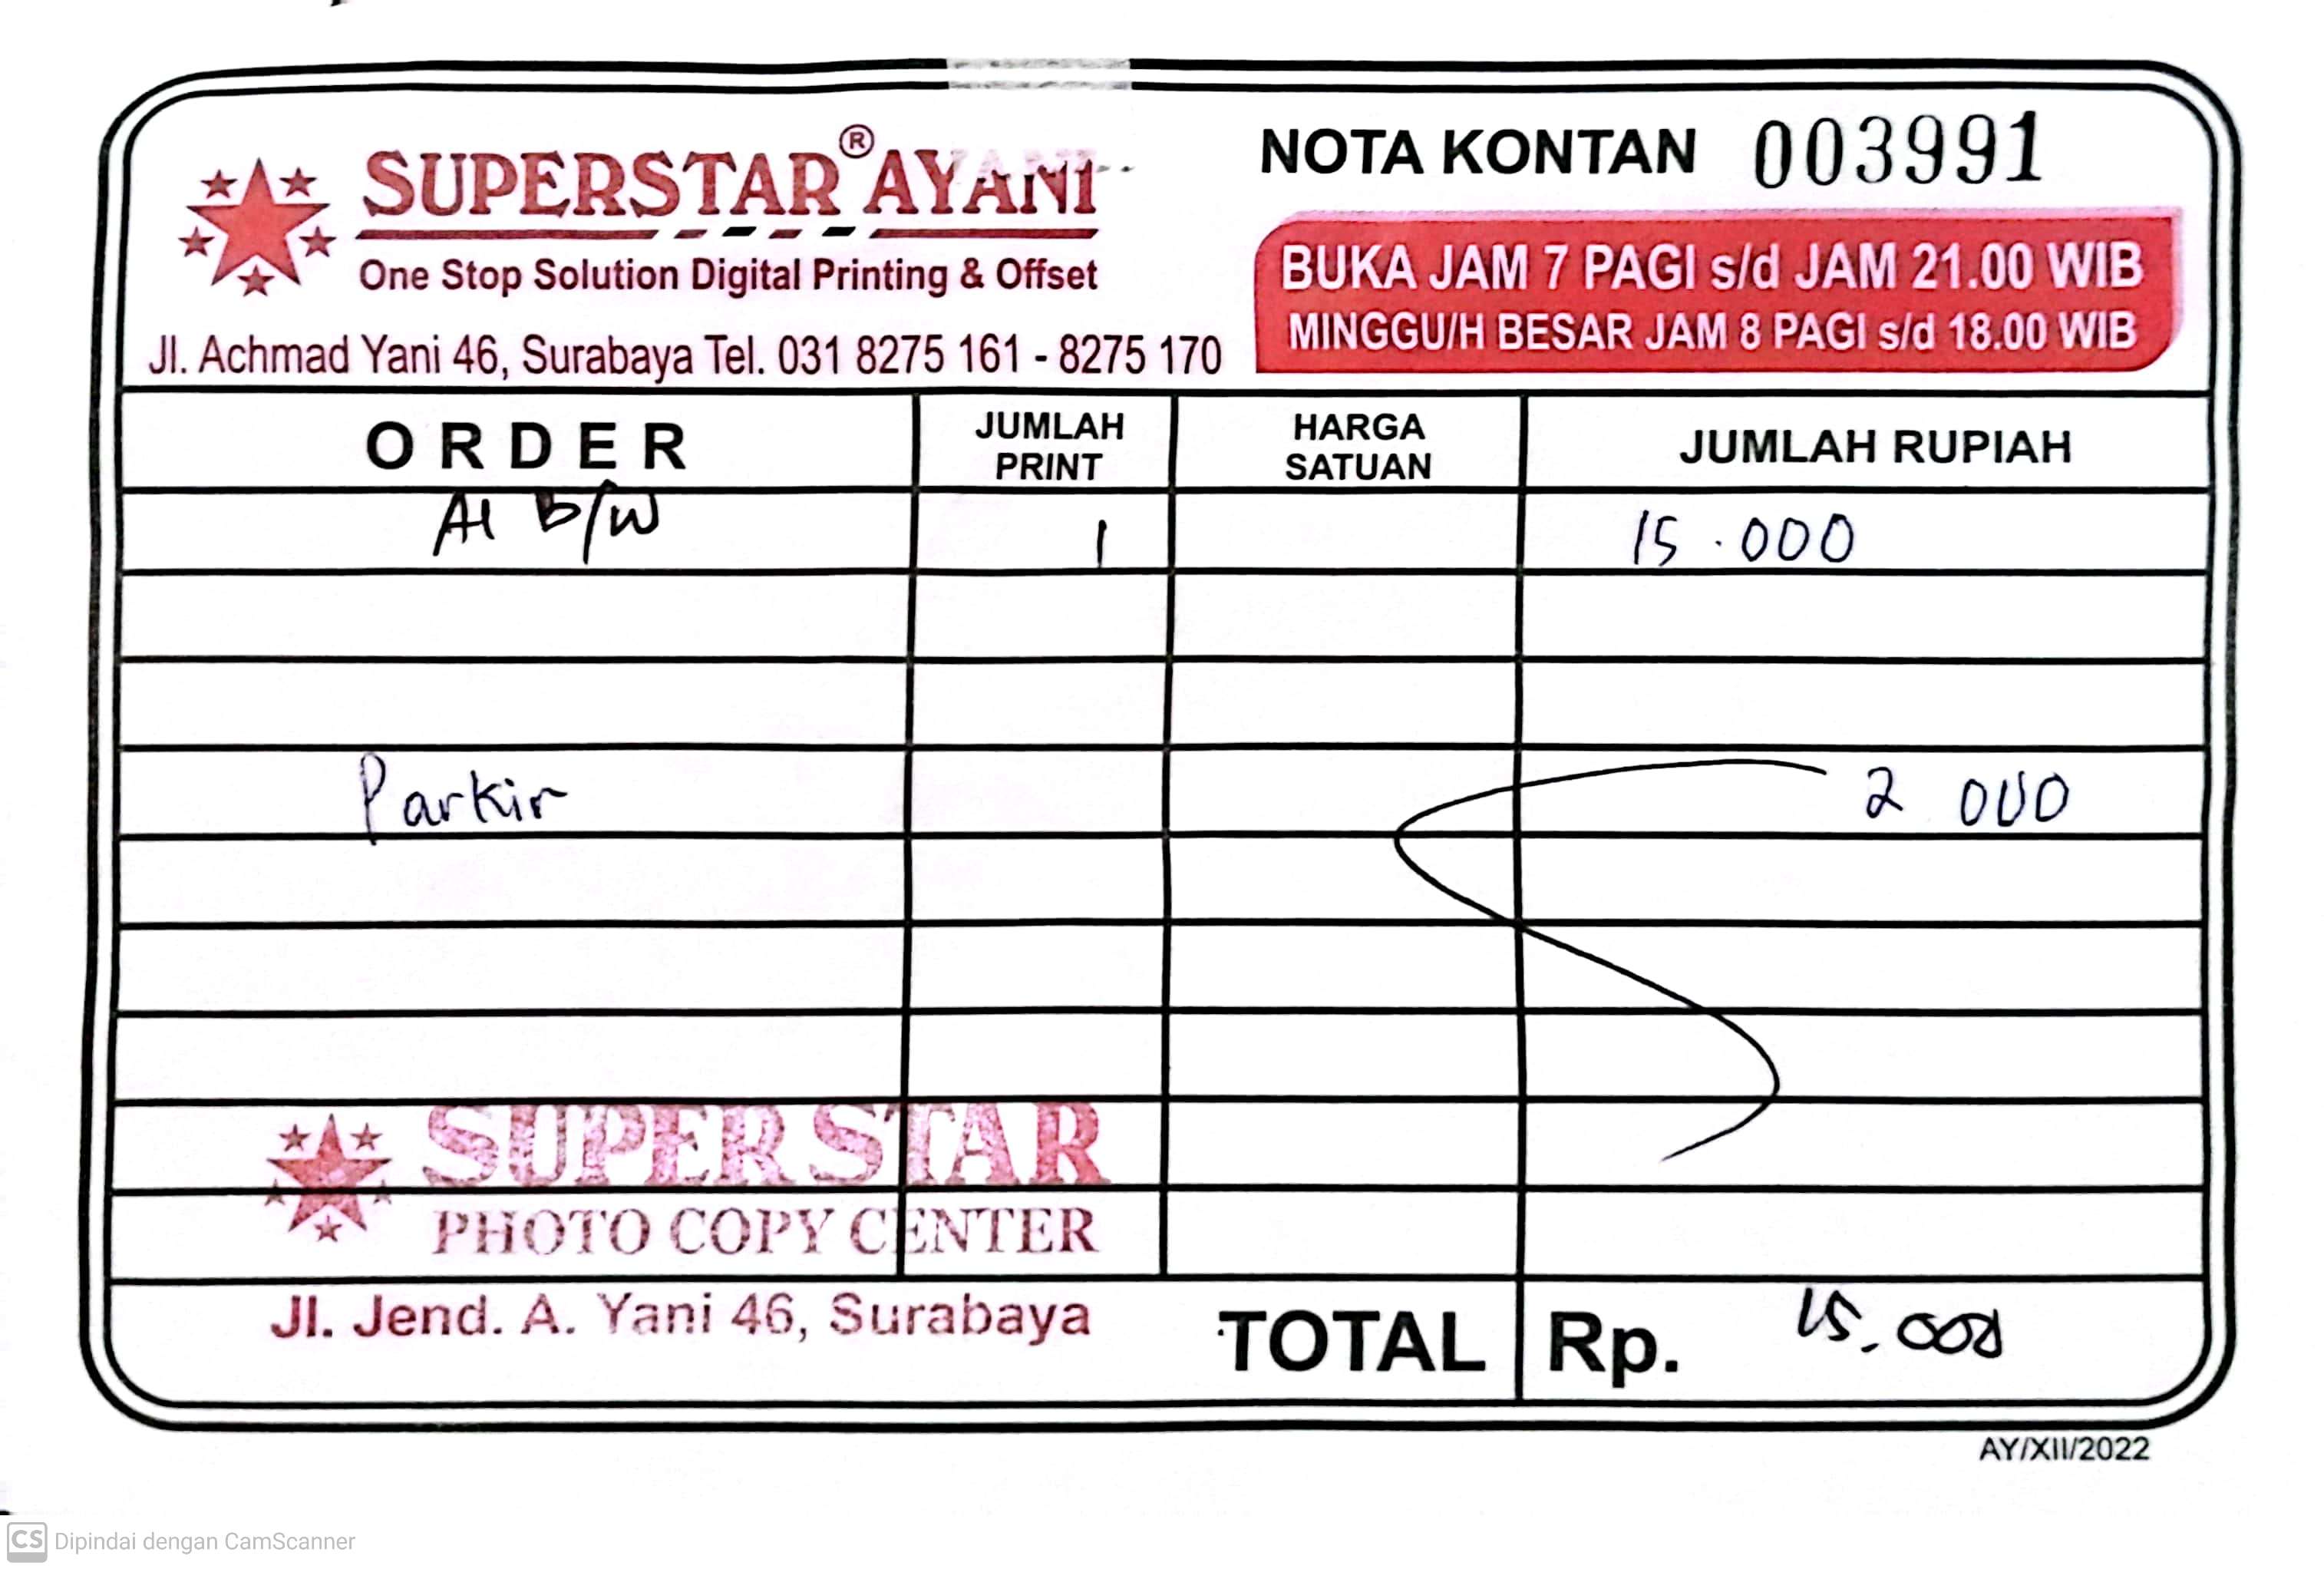 SUPERSTAR® AYANI
One Stop Solution Digital Printing & Offset
Jl. Achmad Yani 46, Surabaya Tel. 031 8275 161 - 8275 170
NOTA KONTAN 003991
BUKA JAM 7 PAGI s/d JAM 21.00 WIB
MINGGU/H BESAR JAM 8 PAGI s/d 18.00 WIB
ORDER JUMLAH PRINT HARGA SATUAN JUMLAH RUPIAH
A1 B/W 1 15.000
Parkir 2 000
SUPER STAR
PHOTO COPY CENTER
Jl. Jend. A. Yani 46, Surabaya
TOTAL Rp. 15.000
AY/XII/2022
CS Dipindai dengan CamScanner